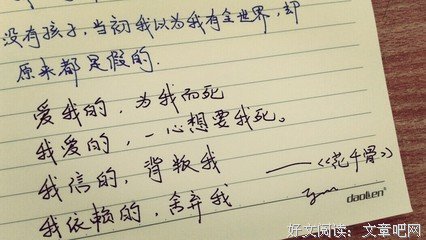 没有孩子,当初我以为我有全世界,却
原来都是假的.
爱我的,为我而死
我爱的,一心想要我死。
我信的,背叛我
——《花千骨》
我依赖的,舍弃我
daolien®
好文阅读: 文章吧网